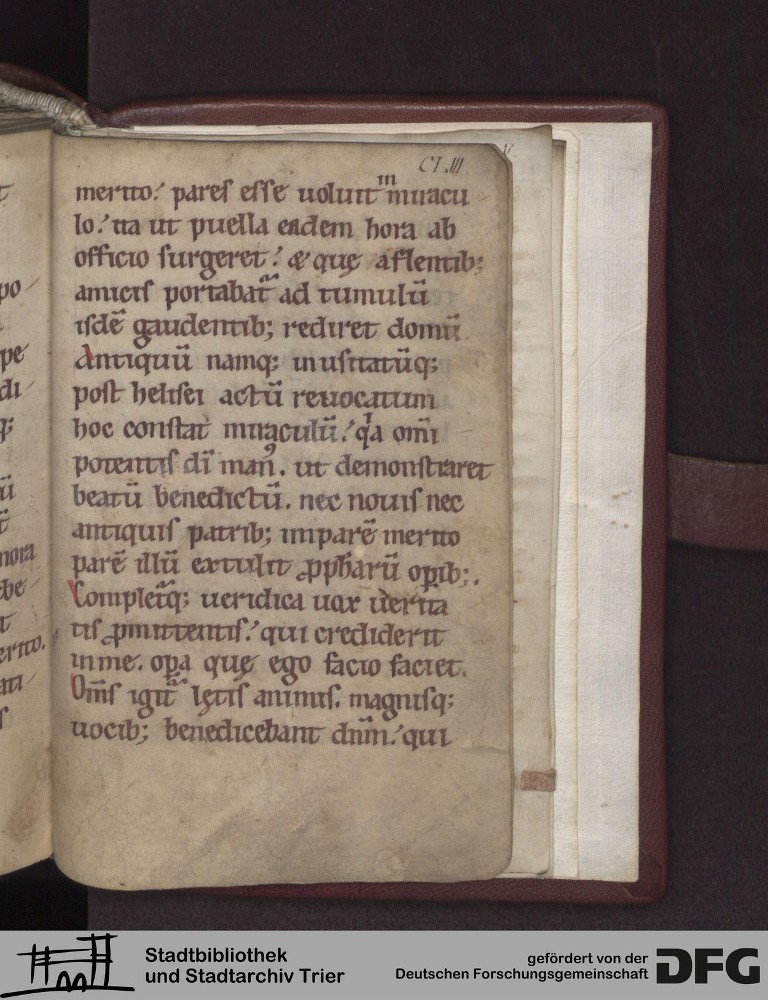 CLIII
merito. pares esse uoluit in miracu
lo. ita ut puella eadem hora ab
officio surgeret. & quę a flentib;
amicis portabat̃ ad tumulū
isdē gaudentib; rediret domū
Antiquū namq; inusitatūq;
post helisei actū reuocatum
hoc constat miraculū. qa om̄i
potentis dī man9. ut demonstraret
beatū benedictū. nec nouis nec
antiquis patrib; imparē merito
parē illū extulit ꝓpħarū opib;.
Complet̃q; ueridica uox uerita
tis ꝓmittentis. qui crediderit
in me. opa quę ego facio faciet.
Om̄s igit̃ lętis animis. magnisq;
uocib; benedicebant dn̄m. qui
po
pe
di
q;
ū
mora
erito.
Stadtbibliothek
und Stadtarchiv Trier
gefördert von der
Deutschen Forschungsgemeinschaft
DFG